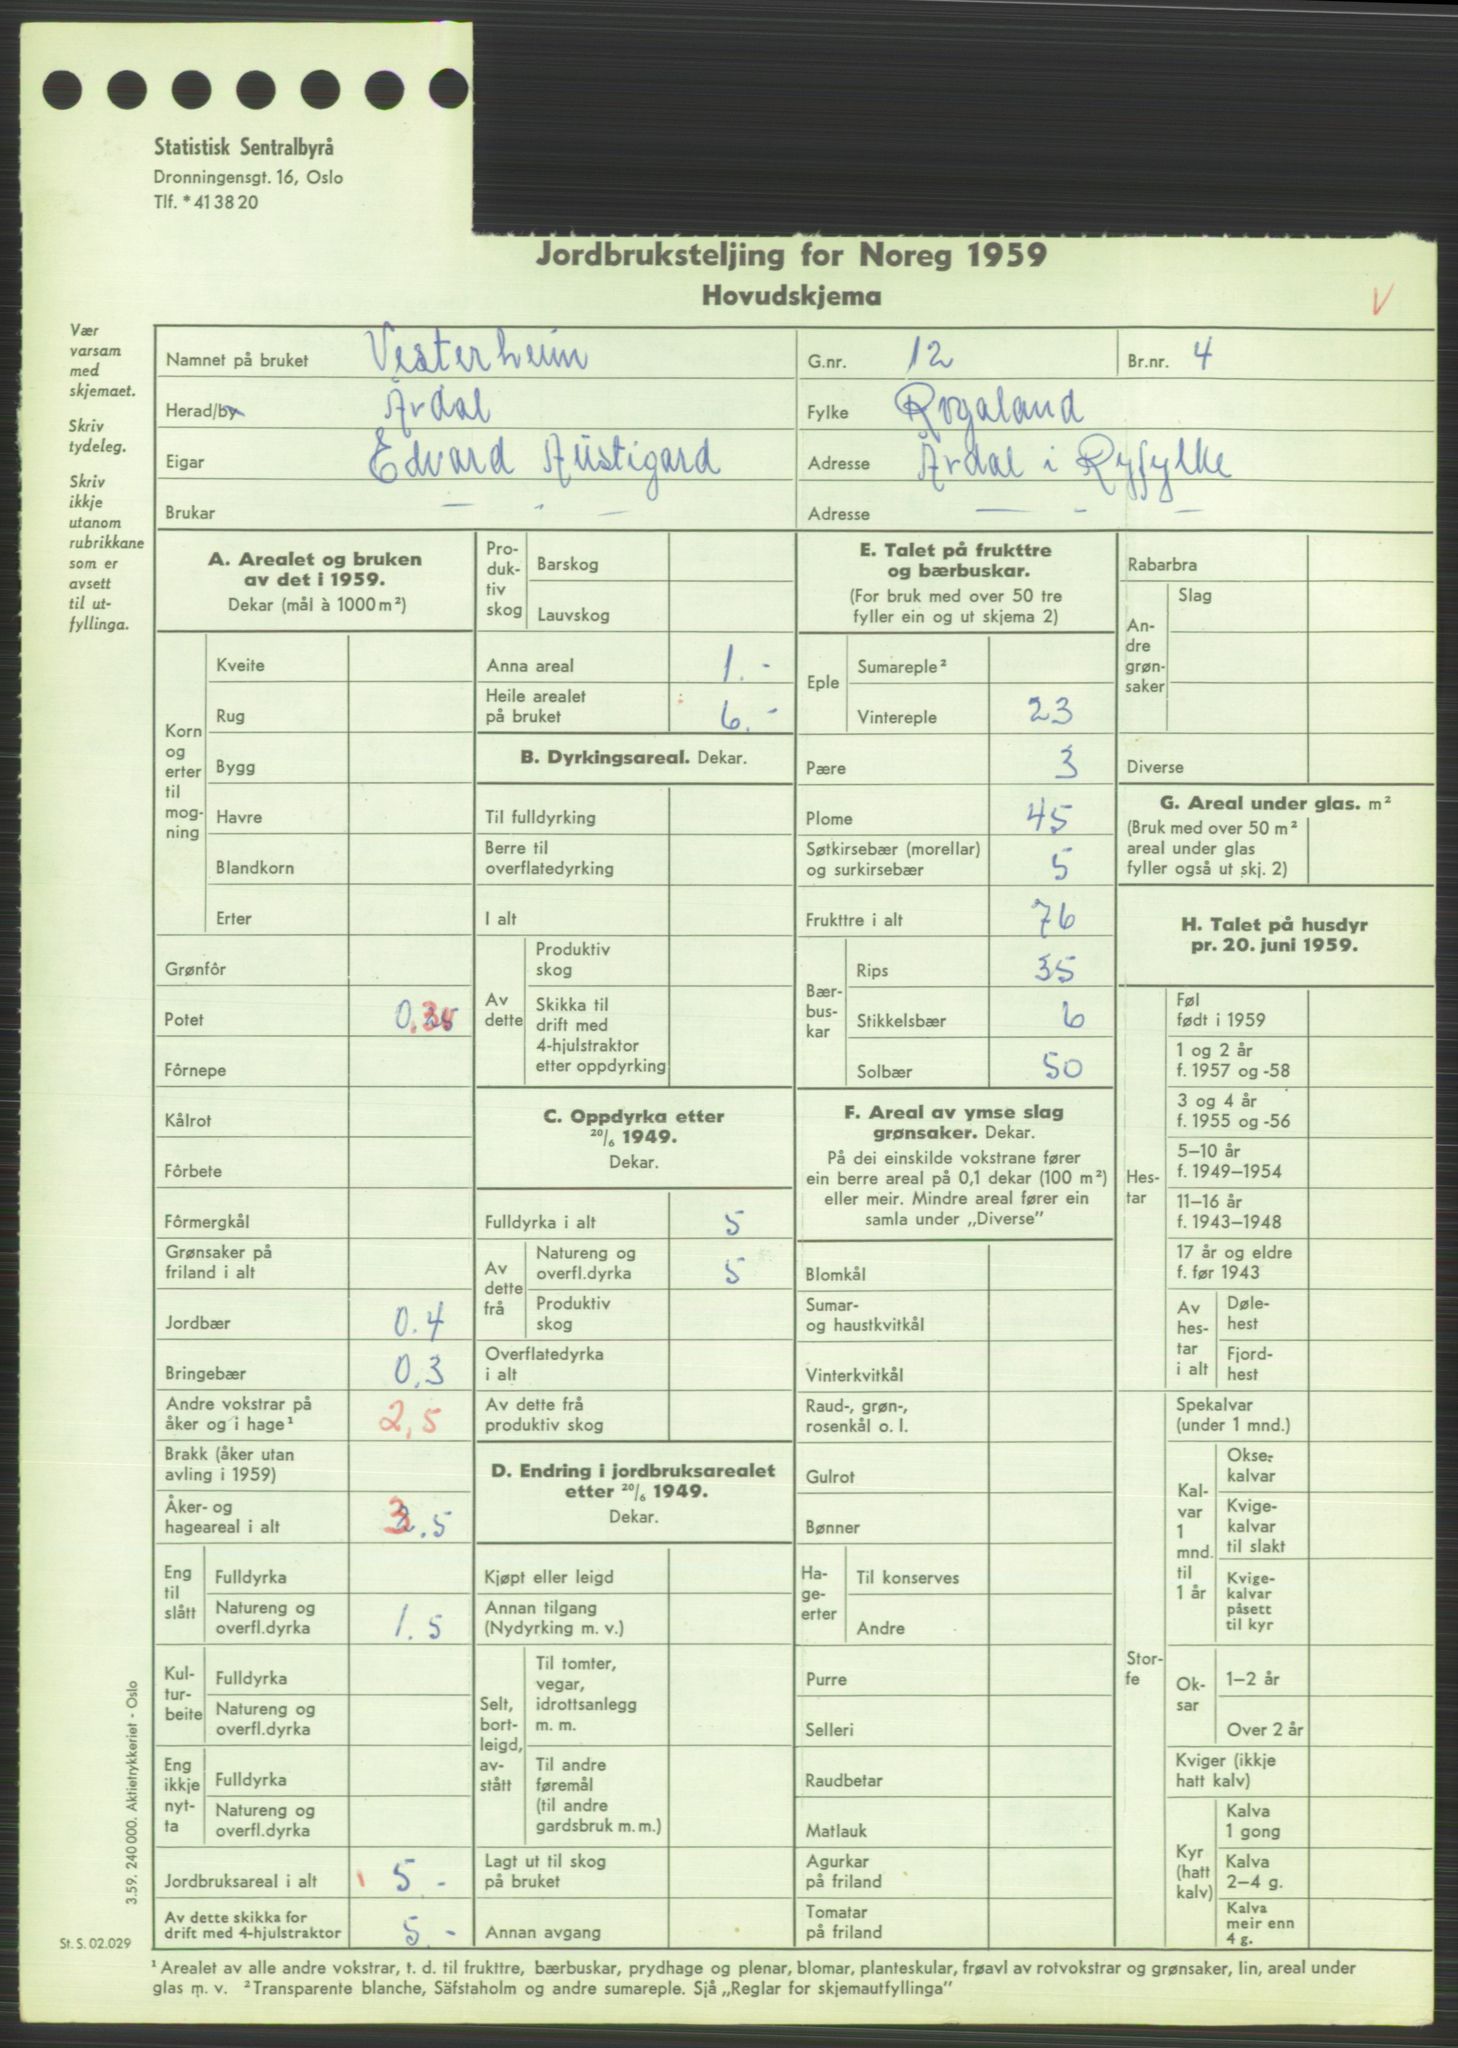 Statistisk Sentralbyrå
Dronningensgt. 16, Oslo
Tlf. * 41 38 20
Jordbruksteljing for Noreg 1959
Hovudskjema
V
Vær
varsam
med
skjemaet.
Skriv
tydeleg.
Skriv
ikkje
utanom
rubrikkane
som er
avsett
til ut-
fyllinga.
Namnet på bruket Vesterheim G.nr. 12 Br.nr. 4
Herad/by Årdal Fylke Rogaland
Eigar Edvard Austigard Adresse Årdal i Ryfylke
Brukar — " — Adresse — " —
A. Arealet og bruken
av det i 1959.
Dekar (mål à 1000 m²)
Korn
og
erter
til
mog-
ning
Kveite
Rug
Bygg
Havre
Blandkorn
Erter
Grønfôr
Potet 0.3
Fôrnepe
Kålrot
Fôrbete
Fôrmergkål
Grønsaker på
friland i alt
Jordbær 0.4
Bringebær 0.3
Andre vokstrar på
åker og i hage¹ 2,5
Brakk (åker utan
avling i 1959)
Åker- og
hageareal i alt 3.5
Eng
til
slått
Fulldyrka
Natureng og
overfl.dyrka 1.5
Kul-
tur-
beite
Fulldyrka
Natureng og
overfl.dyrka
Eng
ikkje
nyt-
ta
Fulldyrka
Natureng og
overfl.dyrka
Jordbruksareal i alt 5.-
Av dette skikka for
drift med 4-hjulstraktor 5.-
Pro-
duk-
tiv
skog
Barskog
Lauvskog
Anna areal 1.-
Heile arealet
på bruket 6.-
B. Dyrkingsareal. Dekar.
Til fulldyrking
Berre til
overflatedyrking
I alt
Av
dette
Produktiv
skog
Skikka til
drift med
4-hjulstraktor
etter oppdyrking
C. Oppdyrka etter
20/6 1949.
Dekar.
Fulldyrka i alt 5
Av
dette
frå
Natureng og
overfl.dyrka 5
Produktiv
skog
Overflatedyrka
i alt
Av dette frå
produktiv skog
D. Endring i jordbruksarealet
etter 20/6 1949.
Dekar.
Kjøpt eller leigd
Annan tilgang
(Nydyrking m. v.)
Selt,
bort-
leigd,
av-
stått
Til tomter,
vegar,
idrottsanlegg
m. m.
Til andre
føremål
(til andre
gardsbruk m. m.)
Lagt ut til skog
på bruket
Annan avgang
E. Talet på frukttre
og bærbuskar.
(For bruk med over 50 tre
fyller ein og ut skjema 2)
Eple
Sumareple²
Vintereple 23
Pære 3
Plome 45
Søtkirsebær (morellar)
og surkirsebær 5
Frukttre i alt 76
Bær-
bus-
kar
Rips 35
Stikkelsbær 6
Solbær 50
F. Areal av ymse slag
grønsaker. Dekar.
På dei einskilde vokstrane fører
ein berre areal på 0,1 dekar (100 m²)
eller meir. Mindre areal fører ein
samla under „Diverse”
Blomkål
Sumar-
og haustkvitkål
Vinterkvitkål
Raud-, grøn-,
rosenkål o. l.
Gulrot
Bønner
Ha-
ge-
erter
Til konserves
Andre
Purre
Selleri
Raudbetar
Matlauk
Agurkar
på friland
Tomatar
på friland
Rabarbra
An-
dre
grøn-
saker
Slag
Diverse
G. Areal under glas. m²
(Bruk med over 50 m²
areal under glas
fyller også ut skj. 2)
H. Talet på husdyr
pr. 20. juni 1959.
Hes-
tar
Føl
født i 1959
1 og 2 år
f. 1957 og -58
3 og 4 år
f. 1955 og -56
5–10 år
f. 1949–1954
11–16 år
f. 1943–1948
17 år og eldre
f. før 1943
Av
hes-
tar
i alt
Døle-
hest
Fjord-
hest
Stor-
fe
Spekalvar
(under 1 mnd.)
Kal-
var
1
mnd.
til
1 år
Okse-
kalvar
Kvige-
kalvar
til slakt
Kvige-
kalvar
påsett
til kyr
Ok-
sar
1–2 år
Over 2 år
Kviger (ikkje
hatt kalv)
Kyr
(hatt
kalv)
Kalva
1 gong
Kalva
2–4 g.
Kalva
meir enn
4 g.
3.59. 240 000. Aktietrykkeriet - Oslo
St. S. 02.029
¹ Arealet av alle andre vokstrar, t. d. til frukttre, bærbuskar, prydhage og plenar, blomar, planteskular, frøavl av rotvokstrar og grønsaker, lin, areal under
glas m. v. ² Transparente blanche, Säfstaholm og andre sumareple. Sjå „Reglar for skjemautfyllinga”